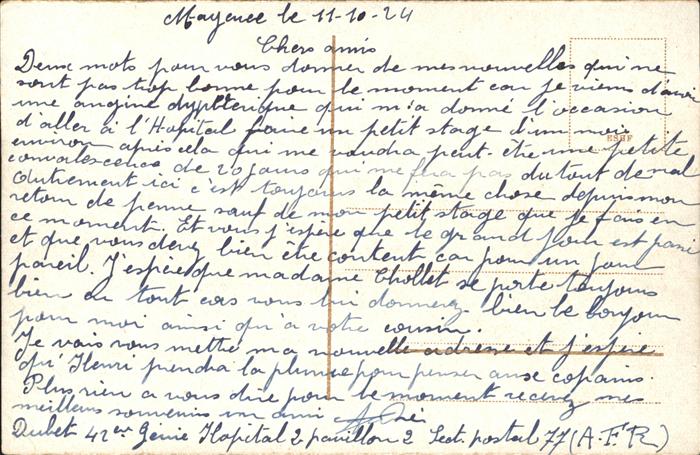 Mayence le 11-10-24
Chers amis
Deux mots pour vous donner de mes nouvelles qui ne
sont pas trop bonne pour le moment car je viens d'avoir
une angine dyptérique qui m'a donné l'occasion
d'aller à l'Hopital faire un petit stage d'un mois
environ après cela qui me vaudra peut-être une petite
convalescence de 20 jours qui me fera pas du tout de mal
Autrement ici c'est toujours la même chose depuis mon
retour de perme sauf de mon petit stage que je fais en
ce moment. Et vous j'espère que le grand jour est passé
et que vous devez bien être content car pour un jour
pareil. J'espère que madame Chollet se porte toujours
bien en tout cas vous lui donnerez bien le bonjour
pour moi ainsi qu'à votre cousin.
Je vais vous mettre ma nouvelle adresse et j'espère
qu'Henri prendra la plume pour penser aux copains.
Plus rien a vous dire pour le moment recevez mes
meilleurs souvenirs un ami
Dubet 41er Génie Hopital 2 pavillon 2 Sect. postal 77 (A.F.R)
ESHF